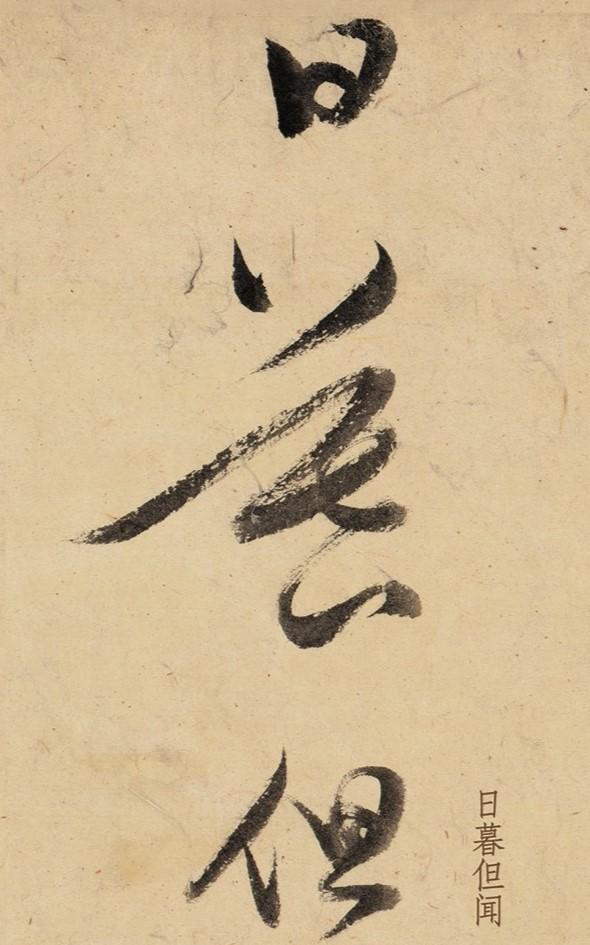 日暮但
日暮但闻